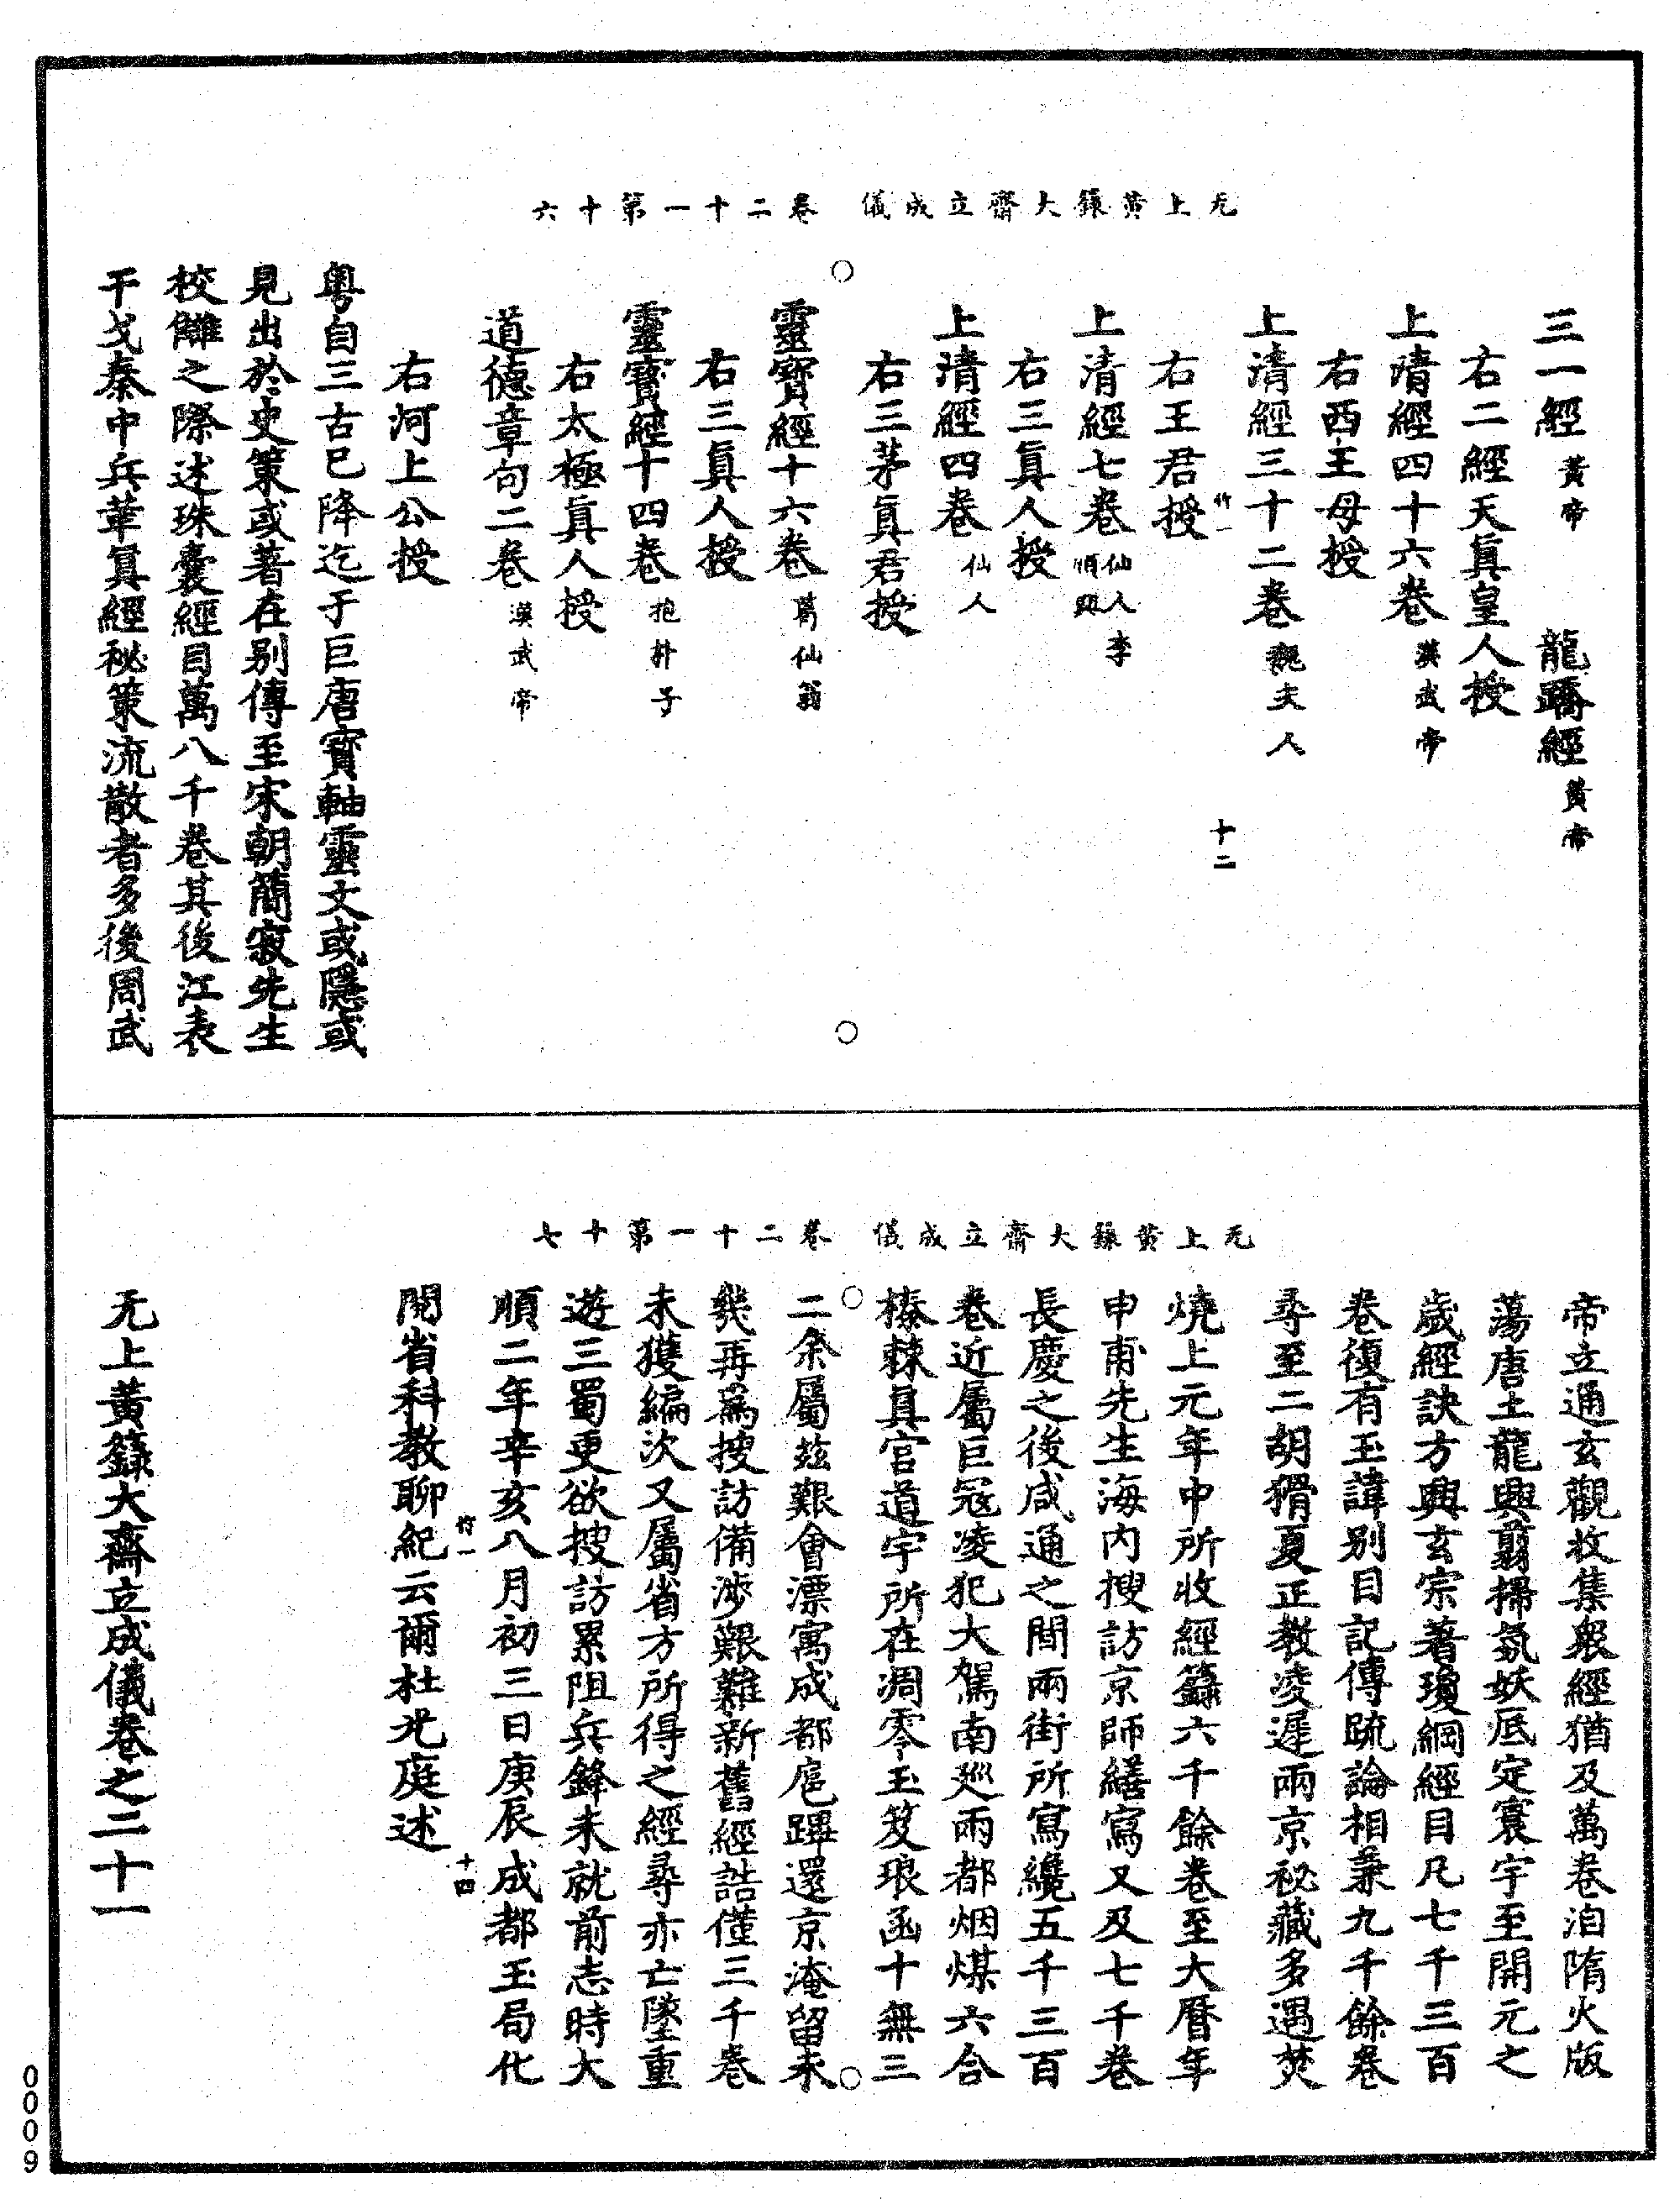 无上黃籙大齋立成儀　卷二十一第十六
三一經黃帝　龍蹻經黃帝
右二經天眞皇人授
上清經四十六卷漢武帝
右西王母授
上清經三十二卷魏夫人
竹一　十二
右王君授
上清經七卷仙人李順興
右三眞人授
上清經四卷仙人
右三茅眞君授
靈寳經十六卷葛仙翁
右三眞人授
靈寳經十四卷抱朴子
右太極眞人授
道德章句二卷漢武帝
右河上公授
粤自三古已降迄于巨唐寳軸靈文或隱或
見出於史策或著在别傳至宋朝簡寂先生
校讎之際述珠囊經目萬八千卷其後江表
干戈秦中兵革眞經祕策流散者多後周武
无上黃籙大齋立成儀　卷二十一第十七
帝立通玄觀收集衆經猶及萬卷洎隋火版
蕩唐土龍興翦掃氛妖底定寰宇至開元之
歲經訣方興玄宗著瓊綱經目凡七千三百
卷復有玉諱别目記傳疏論相兼九千餘卷
尋至二胡猾夏正教凌遲兩京祕藏多遇焚
燒上元年中所收經籙六千餘卷至大曆年
申甫先生海内搜訪京師繕寫又及七千卷
長慶之後咸通之間兩街所寫纔五千三百
卷近屬巨寇凌犯大駕南廵兩都烟煤六合
榛棘真官道宇所在凋零玉笈琅函十無三
二余屬兹艱會漂寓成都扈蹕還京淹留未
幾再爲搜訪備涉艱難新舊經誥僅三千卷
未獲編次又屬省方所得之經尋亦亡墜重
遊三蜀更欲搜訪累阻兵鋒未就前志時大
順二年辛亥八月初三日庚辰成都玉局化
竹一　十四
閱省科教聊紀云爾杜光庭述
无上黃籙大齋立成儀卷之二十一
0009